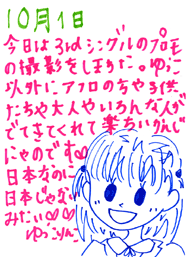 10月1日
今日は3rdシングルのプロモ
の撮影をしました。ゆうこ
以外にアフロのちや子供
たちや大人やいろんな人が
でてきてくれて楽ちいかんじ
にゃのです♥
日本なのに
日本じゃない
みたい♡♡
ゆうこりん